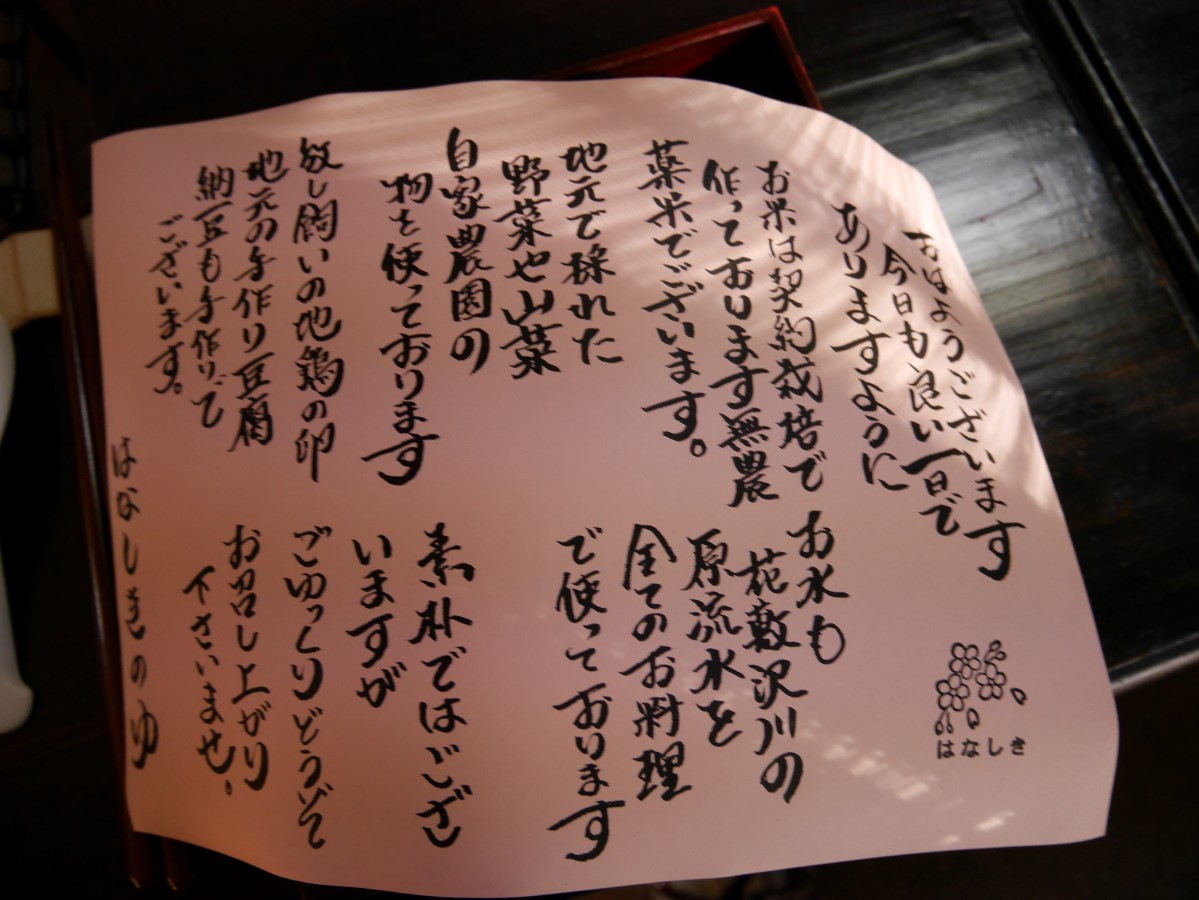 おはようございます
今日も良い一日で
ありますように
お米は契約栽培で
作っております無農
薬米でございます。
地元で採れた
野菜や山菜
自家農園の
物を使っております
放し飼いの地鶏の卵
地元の手作り豆腐
納豆も手作りで
ございます。
お水も
花敷沢川の
原流水を
全てのお料理
で使っております
素朴ではござ
いますが
ごゆっくりどうぞて
お召し上がり
下さいませ。
はなしきのゆ
はなしき